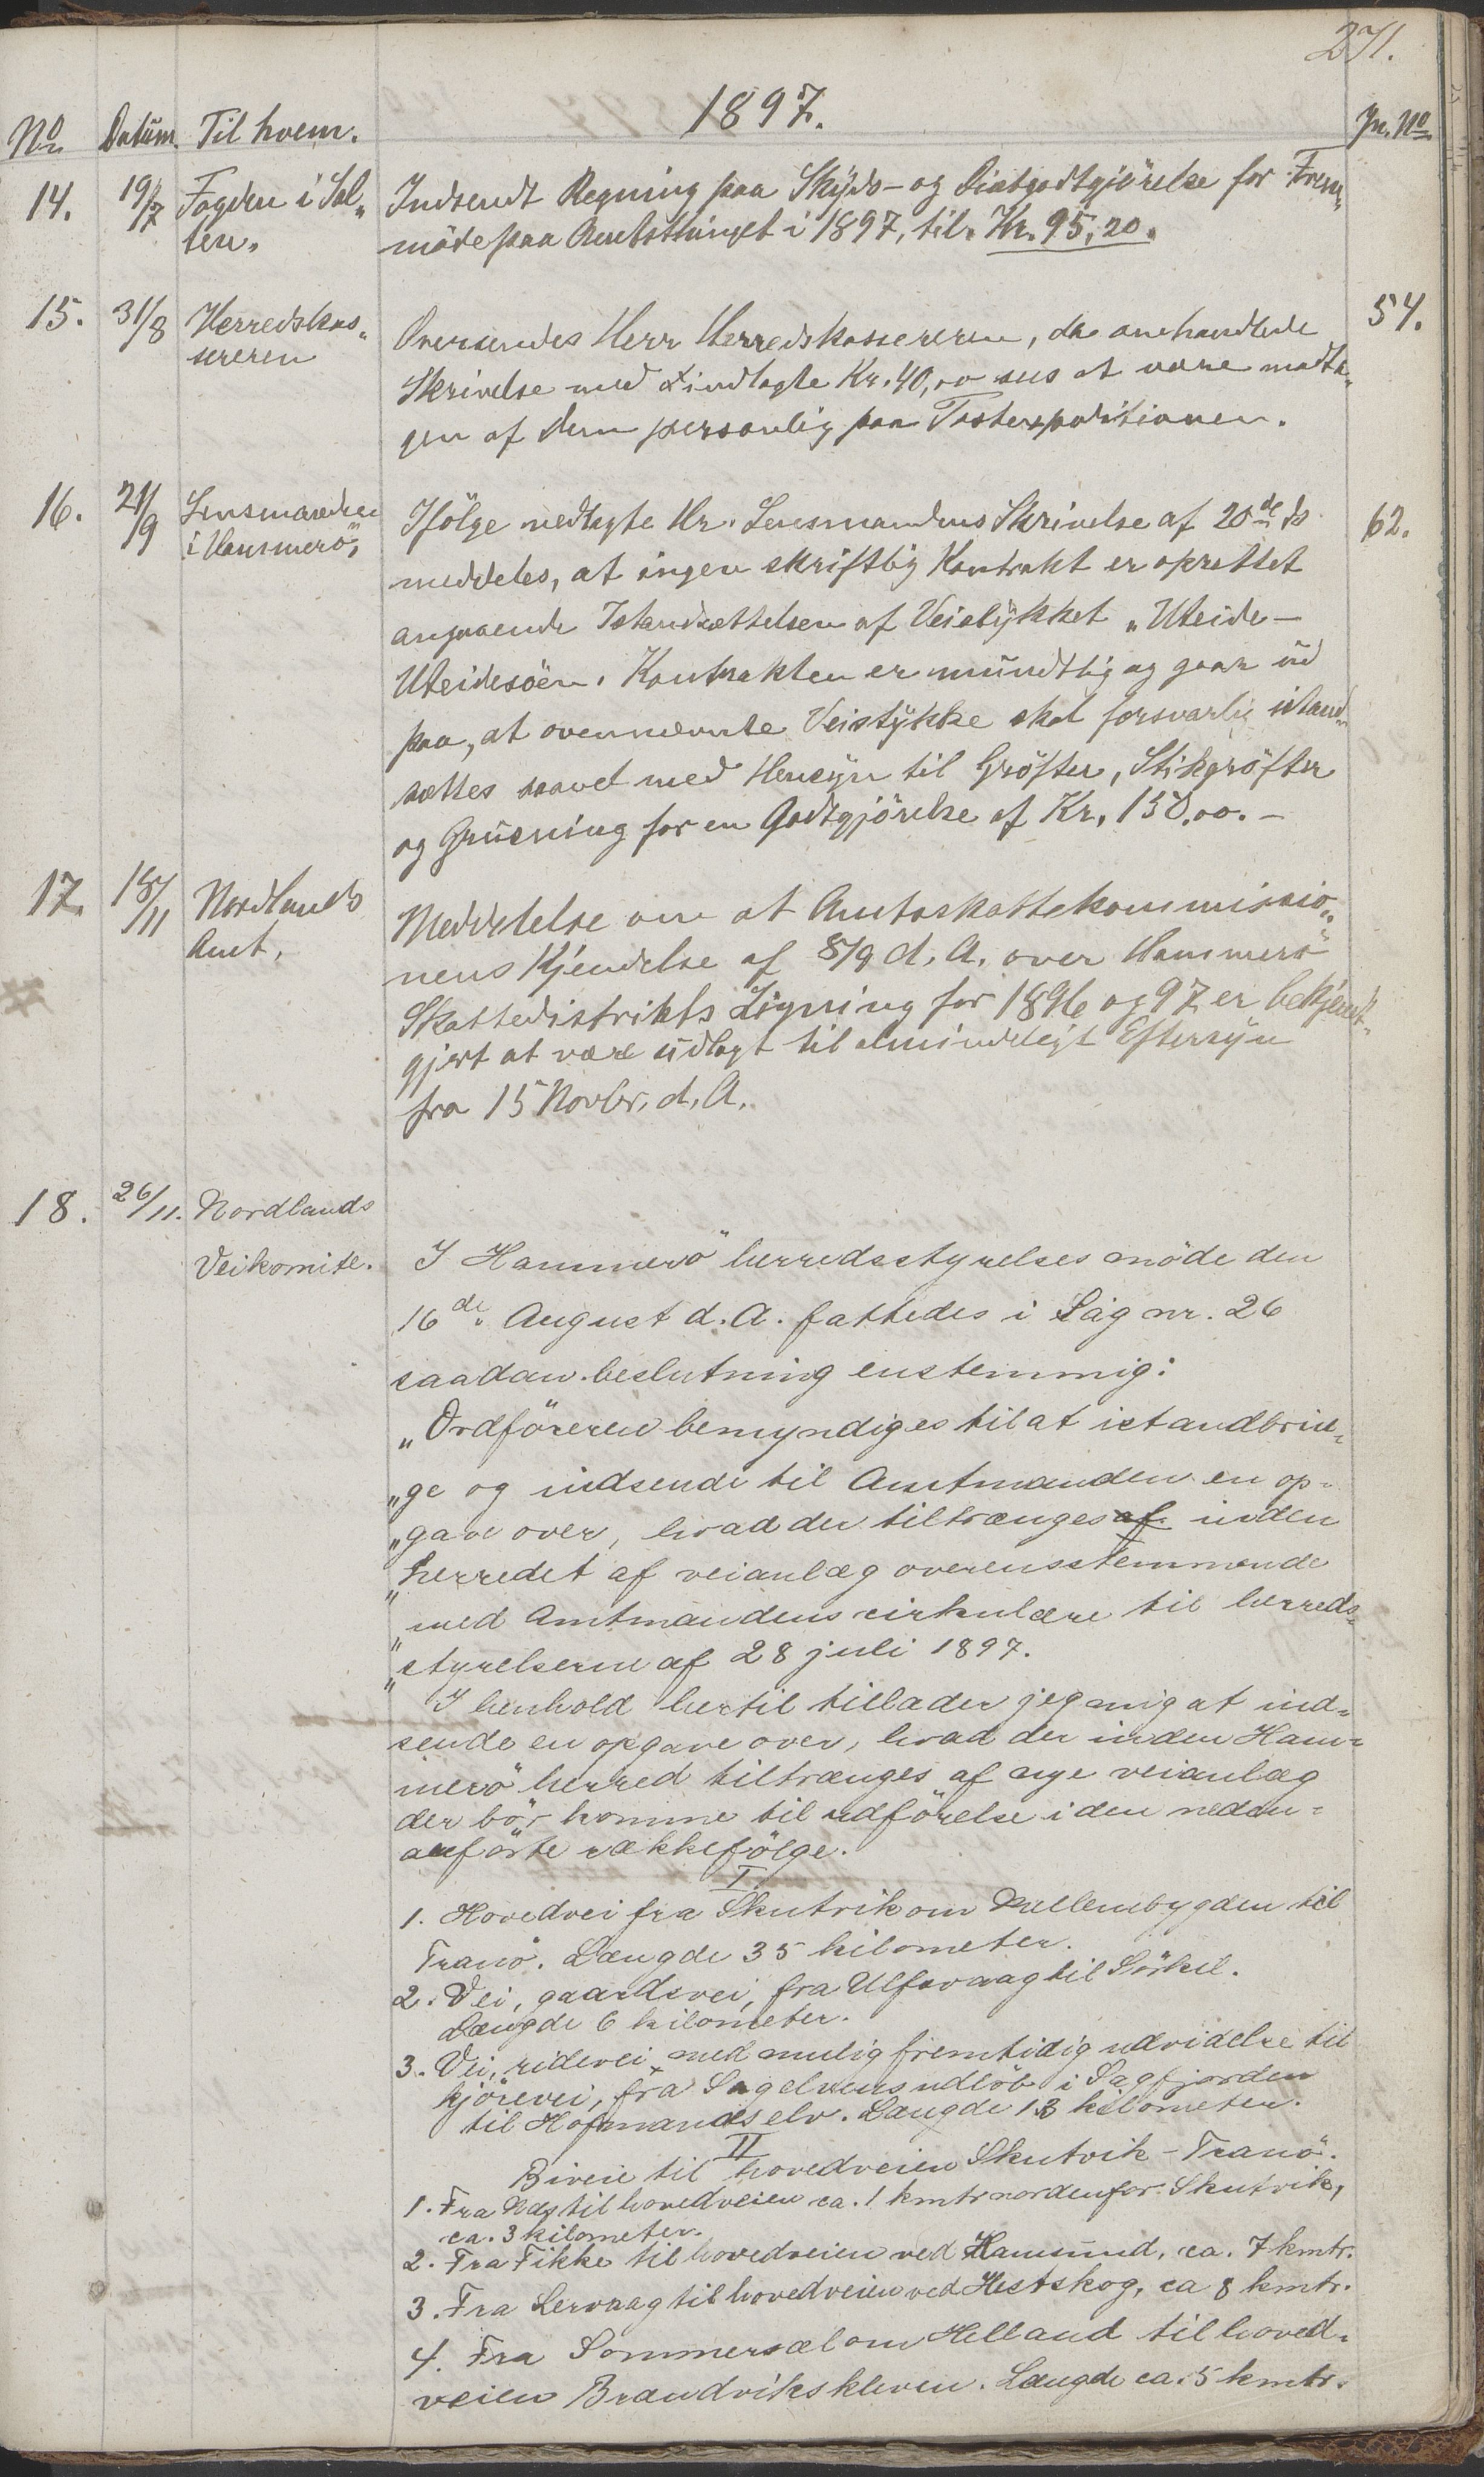 271.
1897.
No Datum. Til hvem. Jn. No
14. 19/7 Fogden i Sal„
ten.
Indsendt Regning paa Skyds- og Diætgodtgjörelse for Frem„
möde paa Amtsthinget i 1897, til. Kr. 95,20.
15. 31/8 Herredskas„
sereren
54.
Oversendes Herr Herredskassereren, da omhandlede
Skrivelse med indlagte Kr. 40,00 sees at være modta„
gen af Dem personlig paa Postexpeditionen.
16. 21/9 Lensmanden
i Hammerö,
62.
Ifölge vedlagte Hr. Lensmandens Skrivelse af 20de ds
meddeles, at ingen skriftlig Kontrakt er oprettet
angaaende Istandsættelsen af Veistykket „Uteide-
Uteidesöen. Kontrakten er mundtlig og gaar ud
paa, at ovennævnte Veistykke skal forsvarlig istand„
sættes saavel med Hensyn til Gröfter, Stikgröfter
og Grusning for en Godtgjörelse af Kr. 150,00.-
17. 18/11 Nordlands
Amt,
Meddelelse om at Amtsskattekommissio„
nens Kjendelse af 8/9 d. A. over Hammerö
Skattedistrikts Ligning for 1896 og 97 er bekjendt„
gjort at være udlagt til almindeligt Eftersyn
fra 15 Novbr. d. A.
18. 26/11. Nordlands
Veikomite.
I Hammerö herredsstyrelses möde den
16de August d. A. fattedes i Sag nr. 26
saadan beslutning enstemmig:
„Ordföreren bemyndiges til at istandbrin„
„ge og indsende til Amtmanden en op-
„gave over, hvad der tiltrænges af inden
„herredet af veianlæg overensstemmende
„med Amtmandens cirkulære til herreds„
„styrelserne af 28 juli 1897.
I henhold hertil tillader jeg mig at ind-
sende en opgave over, hvad der inden Ham-
merö herred tiltrænges af nye veianlæg
der bör komme til udförelse i den neden-
anförte rækkefölge.
I
1. Hovedvei fra Skutvik om
til
Tranö. Længde 35 kilometer.
2. Vei, gaardsvei, fra Ulfsvaag til Sörkil.
Længde 6 kilometer.
3. Vei, ridevei med mulig fremtidig udvidelse til
kjörevei, fra Sagelvens udlöb i Sagfjorden
til Hofmandselv. Længde 13 kilometer.
II
Biveie til hovedveien Skutvik - Tranö.
1. Fra Næs til hovedveien ca. 1 kmtr nordenfor Skutvik,
ca. 3 kilometer.
2. Fra Fikke til hovedveien ved Hamsund, ca. 7 kmtr.
3. Fra Lervaag til hovedveien ved Hestskog, ca 8 kmtr.
4. Fra Sommersæl om Helland til hoved-
veien Brandvikskleven. Længde ca. 5 kmtr.